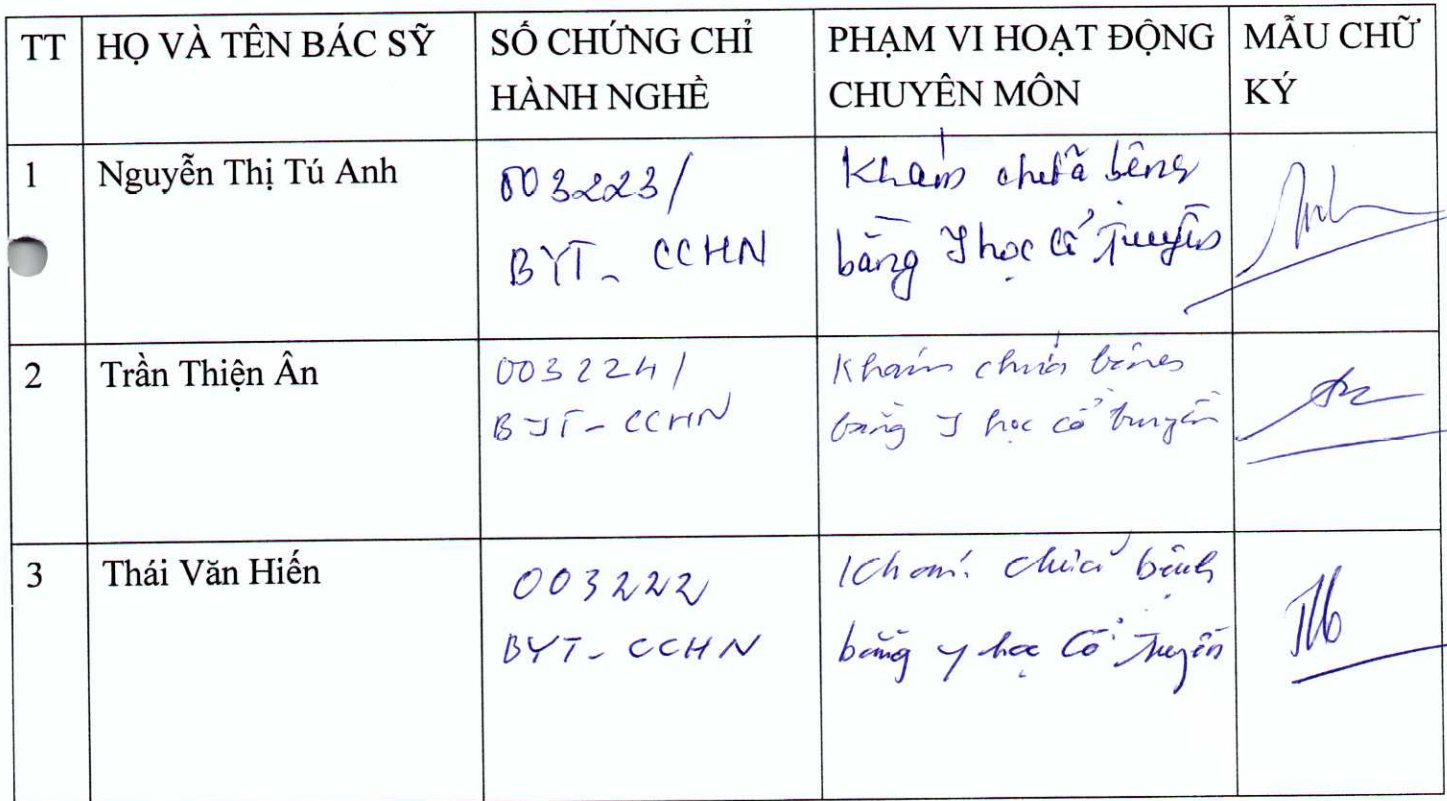 TT HỌ VÀ TÊN BÁC SỸ SỐ CHỨNG CHỈ HÀNH NGHỀ PHẠM VI HOẠT ĐỘNG CHUYÊN MÔN MẪU CHỮ KÝ
1 Nguyễn Thị Tú Anh 003223/ Khám chữa bệnh
BYT- CCHN bằng Y học cổ truyền
2 Trần Thiện Ân 003224/ Khám chữa bệnh
BYT- CCHN bằng Y học cổ truyền
3 Thái Văn Hiến 003222 Khám chữa bệnh
BYT- CCHN bằng y học cổ truyền